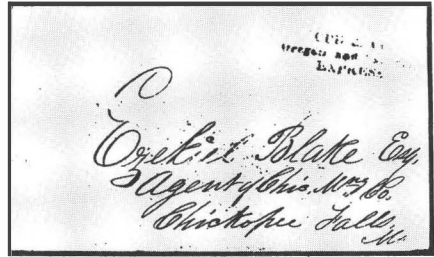 Oregon and
EXPRESS
Ezekiel Blake Esq.
Agent of Chic. Mfg Co.
Chickopee Falls,